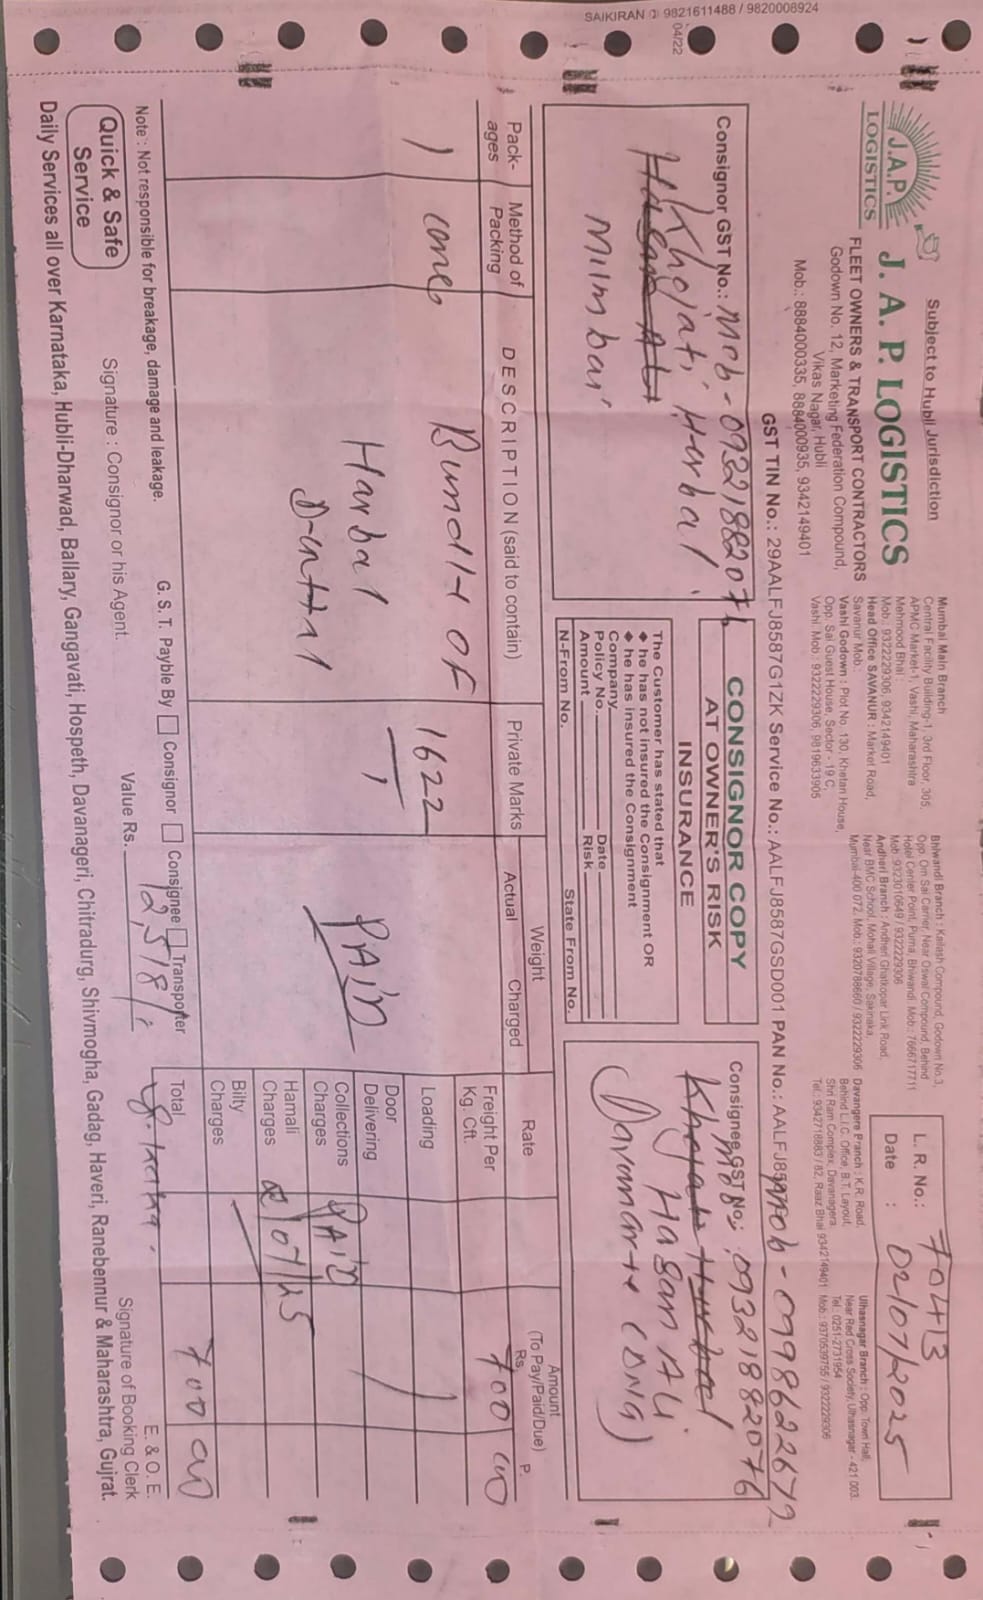 SAIKIRAN ✆ 9821611488 / 9820008924
04/22
Subject to Hubli Jurisdiction
J.A.P.
LOGISTICS
J. A. P. LOGISTICS
FLEET OWNERS & TRANSPORT CONTRACTORS
Godown No. 12, Marketing Federation Compound,
Vikas Nagar, Hubli
Mob.: 8884000335, 8884000935, 9342149401
Mumbai Main Branch
Central Facility Building-1, 3rd Floor, 305,
APMC Market-1, Vashi, Maharashtra
Mehmood Bhai :
Mob.: 9322229306, 9342149401
Head Office SAVANUR : Market Road,
Savanur Mob.:
Vashi Godown : Plot No. 130, Khetan House,
Opp. Sai Guest House, Sector - 19 C,
Vashi. Mob : 9322229306, 9819633905
Bhiwandi Branch : Kailash Compound, Godown No.3,
Opp. Om Sai Carrier, Near Oswal Compound, Behind
Hotel Center Point, Purna, Bhiwandi. Mob.: 7666717711
Mob : 9323010649 / 9322229306
Andheri Branch : Andheri Ghatkopar Link Road,
Near BMC School, Mohali Village, Sakinaka,
Mumbai-400 072. Mob.: 9320788660 / 9322229306
Davangere Branch : K.R. Road,
Behind L.I.C. Office, B.T. Layout,
Shri Ram Complex, Davanagera.
Tel.: 9342718883 / 82, Raaz Bhai 9342149401
Ulhasnagar Branch : Opp. Town Hall,
Near Red Cross Society, Ulhasnagar - 421 003.
Tel.: 0251-2731954
Mob.: 9370539755 / 9322229306
L. R. No.: 70413
Date : 02/07/2025
GST TIN No.: 29AALFJ8587G1ZK Service No.: AALFJ8587GSD001 PAN No.: AALFJ85
Mob - 0998622672
Consignor GST No.: Mob - 09221882076
Khojati Herbal
Mumbai
CONSIGNOR COPY
AT OWNER'S RISK
INSURANCE
The Customer has stated that
◆ he has not insured the Consignment OR
◆ he has insured the Consignment
Company
Policy No. Date
Amount Risk
N-From No. State From No.
Consignee GST No.:
Mob: 09321882076
Hasan Ali
Davanagere (DNG)
Pack-ages
Method of Packing
DESCRIPTION (said to contain)
Private Marks
Weight
Actual Charged
Rate
Amount
(To Pay/Paid/Due)
Rs. P.
1 Bundle of
Harbal
Dental
1622
PAID
Freight Per
Kg. Cft. 700 00
Loading
Door
Delivering
Collections
Charges PAID
Hamali
Charges 2/07/25
Bilty
Charges
Total 700 00
Note : Not responsible for breakage, damage and leakage.
G. S. T. Payble By Consignor Consignee Transporter
Value Rs. 12,518/-
E. & O. E.
Quick & Safe
Service
Signature : Consignor or his Agent.
Signature of Booking Clerk
Daily Services all over Karnataka, Hubli-Dharwad, Ballary, Gangavati, Hospeth, Davanageri, Chitradurg, Shivmogha, Gadag, Haveri, Ranebennur & Maharashtra, Gujrat.